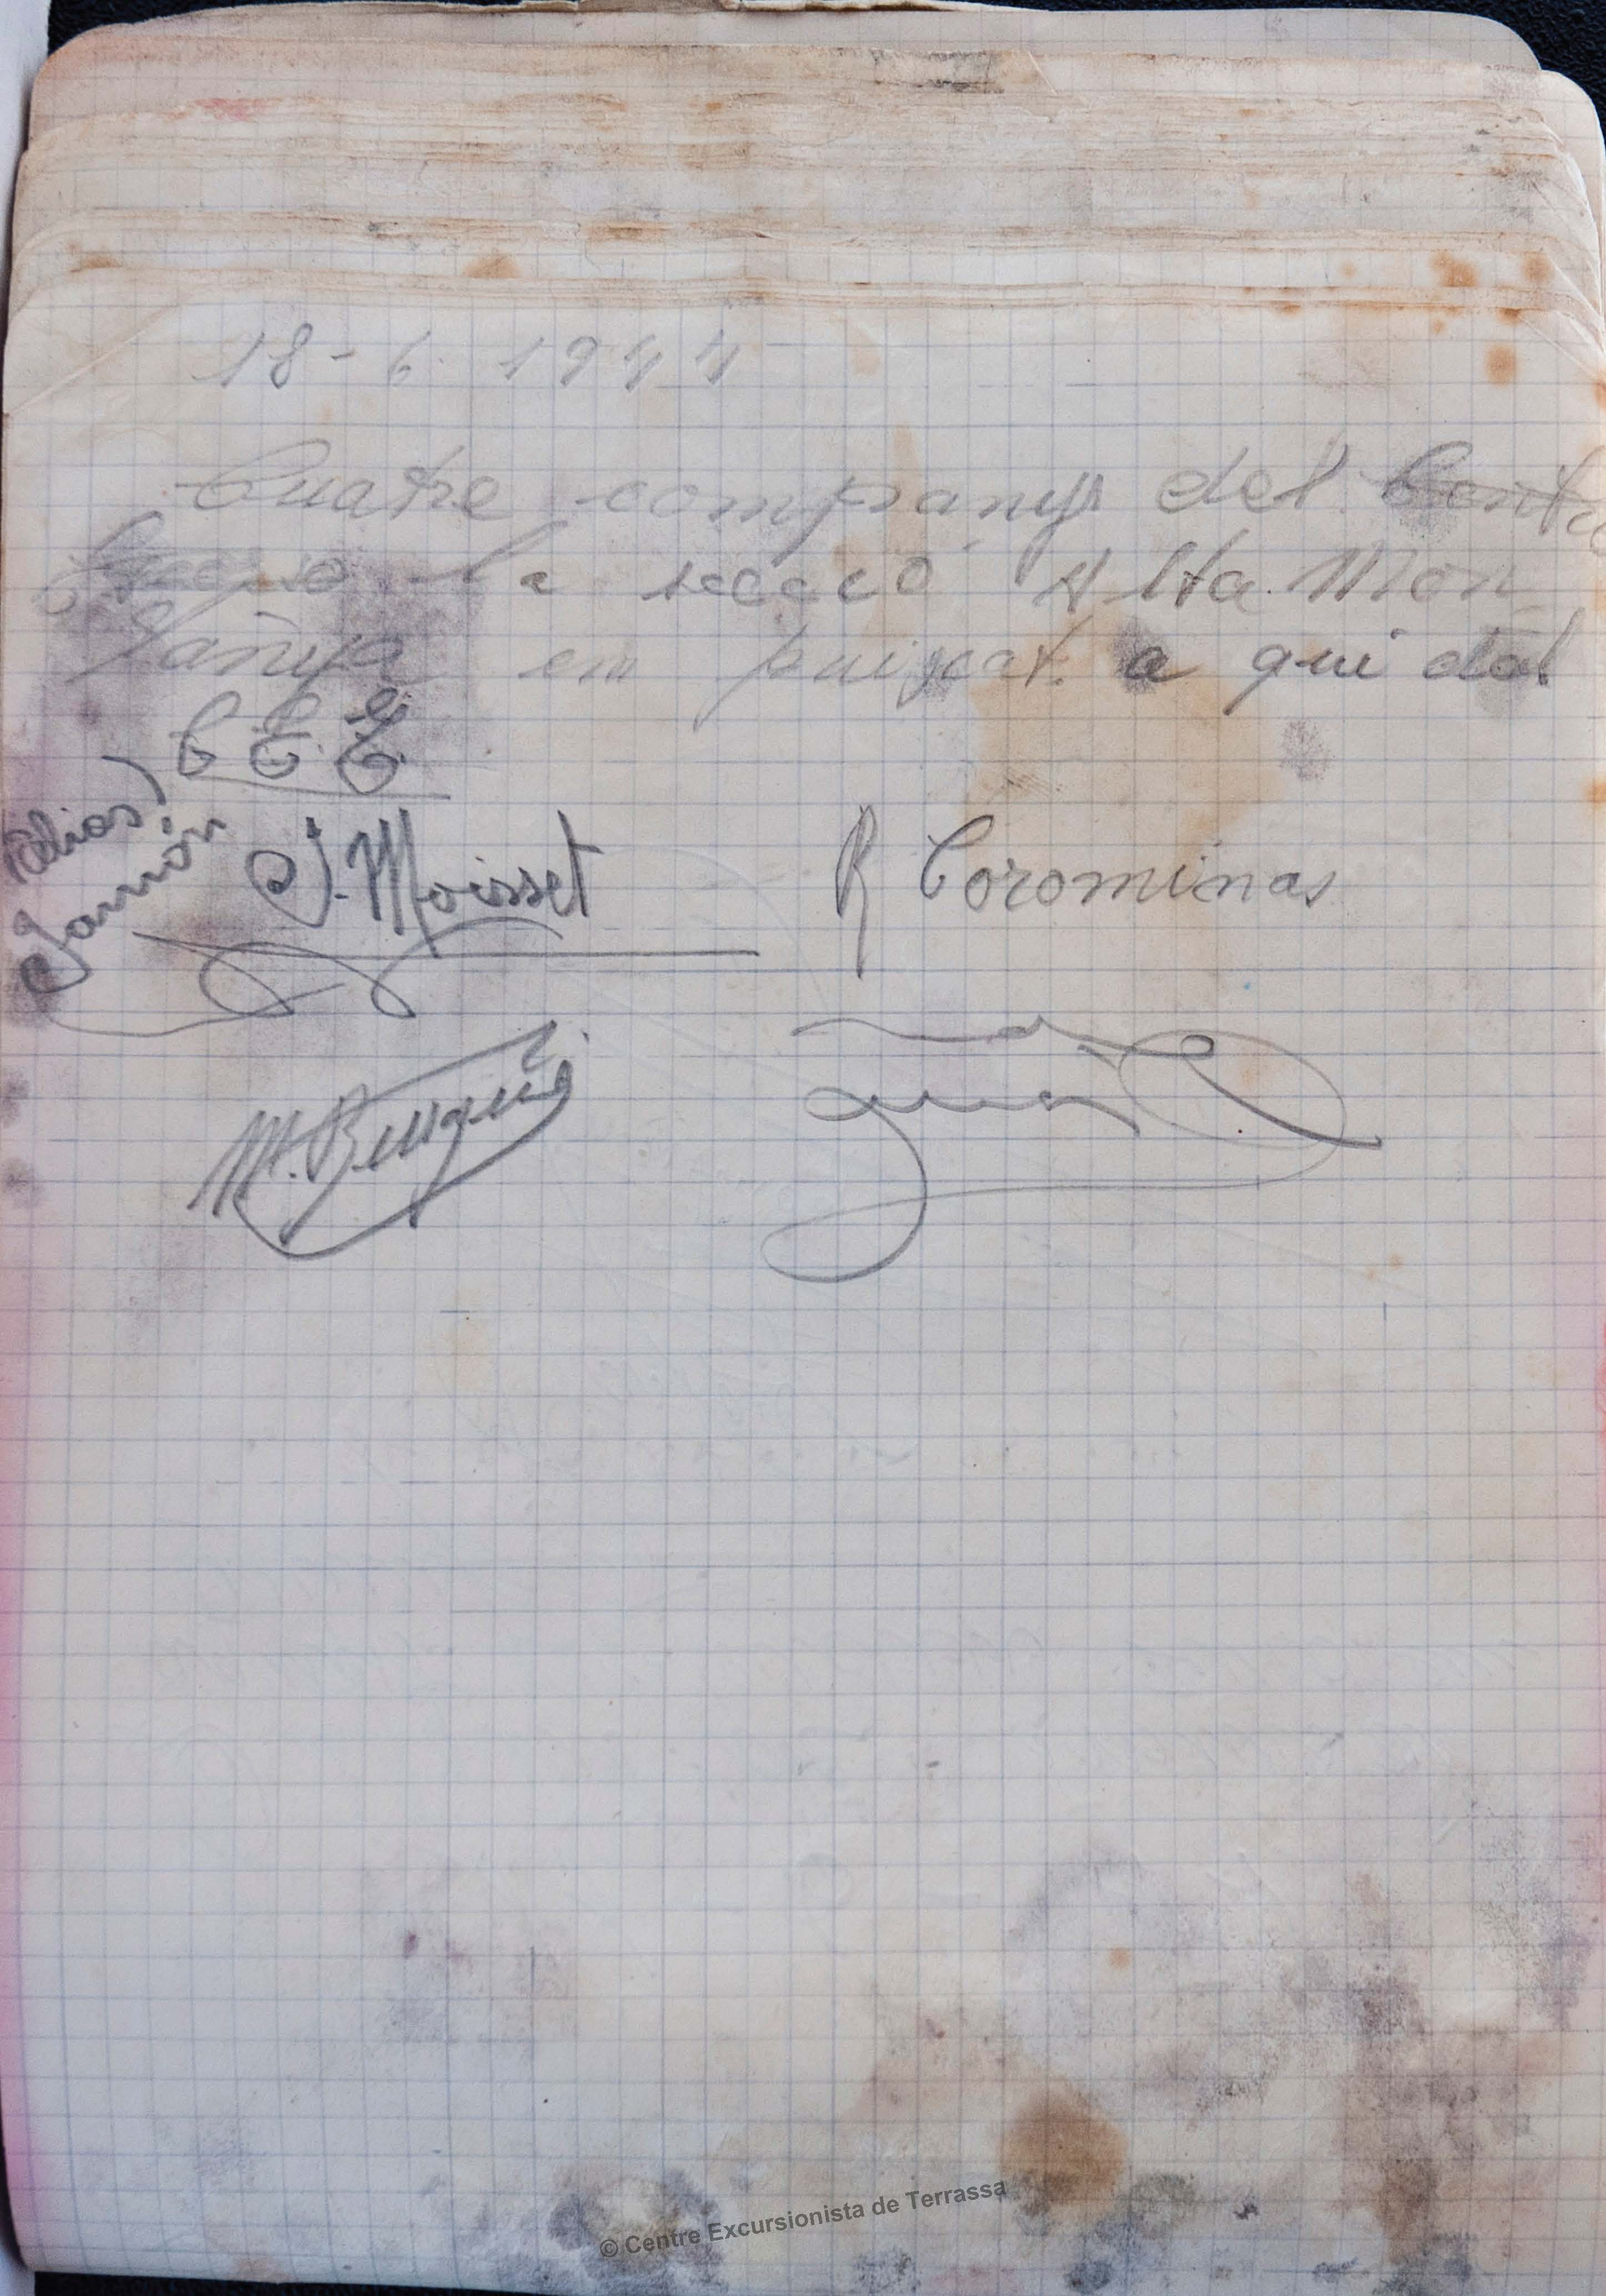 18-6-1944
Cuatre companys del
la secció Alta Mon
tañya em puigcat a qui dal
C E E
(Alias)
Jamón
J. Moisset
R Corominas
© Centre Excursionista de Terrassa